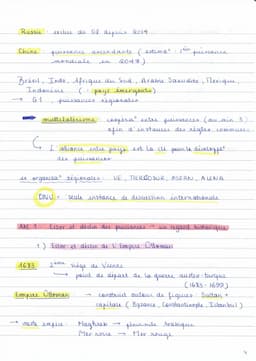 Russie : exclue du G8 depuis 2014
Chine : puissance ascendante ( estima° : 1ère puissance
mondiale en 2049 )
Brésil, Inde, Afrique du Sud, Arabie Saoudite, Mexique,
Indonésie ( pays émergents )
→ G20, puissances régionales
→ multilatéralisme : coopéra° entre puissances ( au min 3 )
afin d'instaurer des règles communes
↳ L'alliance entre pays est la clé pour le développt
des puissances
≠ organisa° régionales : UE, MERCOSUR, ASEAN, ALENA
ONU = seule instance de discussion internationale
Axe 1 Essor et déclin des puissances : un regard historique
1) Essor et déclin de l'Empire Ottoman
1683 : 2ème siège de Vienne
↳ point de départ de la guerre austro-turque
( 1683 - 1699 )
Empire Ottoman → construit autour de figures : Sultan +
capitale ( Byzance, Constantinople, Istanbul )
→ vaste empire : Maghreb → péninsule Arabique
Mer noire → Mer rouge